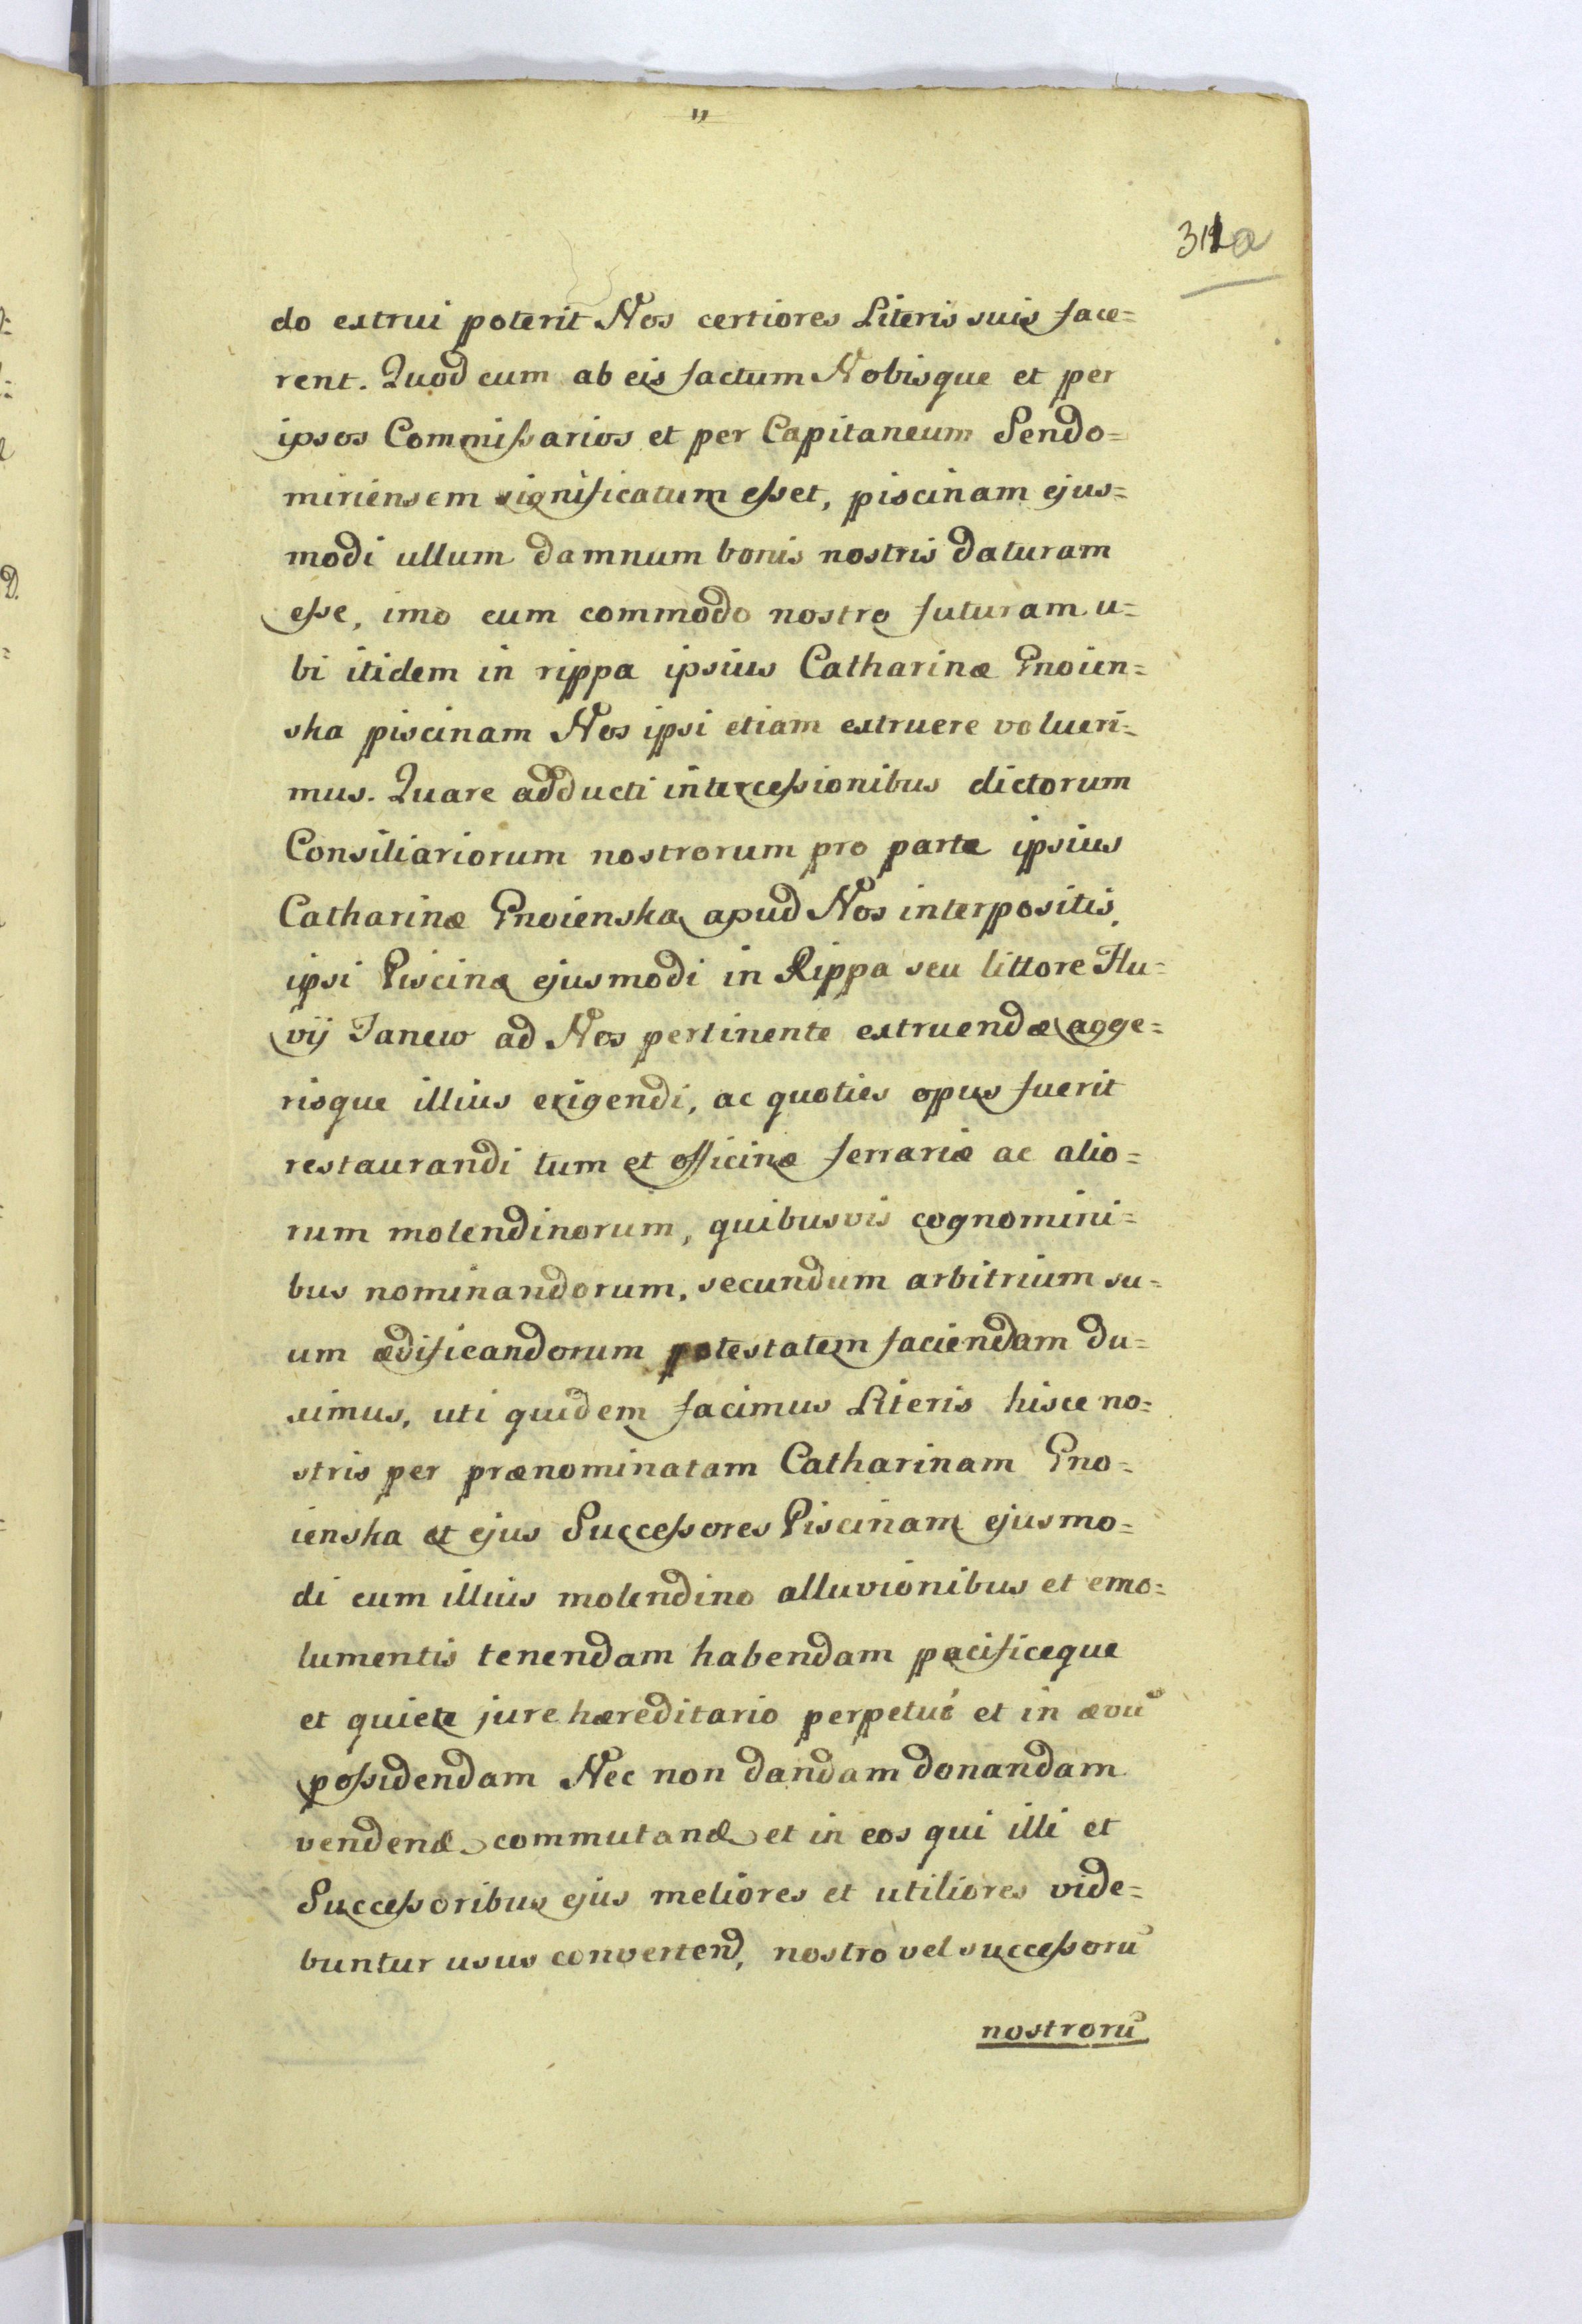 "
312a
do extrui poterit Nos certiores Literis suis face=
rent. Quod cum ab eis factum Nobisque et per
ipsos Commißarios et per Capitaneum Sendo=
miriensem significatum eßet, piscinam ejus=
modi ullum damnum bonis nostris daturam
eße, imo cum commodo nostro futuram u=
bi itidem in rippa ipsius Catharinæ Gnoien=
ska piscinam Nos ipsi etiam extruere volueri=
mus. Quare adducti interceßionibus dictorum
Consiliariorum nostrorum pro parte ipsius
Catharinæ Gnoienska apud Nos interpositis,
ipsi Piscinæ ejusmodi in Rippa seu littore Flu=
vij Tanew ad Nos pertinente extruendæ agge=
risque illius erigendi, ac quoties opus fuerit
restaurandi tum et officinæ ferrariæ ac alio=
rum molendinorum, quibusvis cognomini=
bus nominandorum, secundum arbitrium su=
um ædificandorum potestatem faciendam du=
ximus, uti quidem facimus Literis hisce no=
stris per prænominatam Catharinam Gno=
ienska et ejus Succeßores Piscinam ejusmo=
di cum illius molendino alluvionibus et emo=
lumentis tenendam habendam pacificeque
et quiete jure hæreditario perpetuè et in ævū
poßidendam Nec non dandam donandam
vendend commutand et in eos qui illi et
Succeßoribus ejus meliores et utiliores vide=
buntur usus convertend, nostro vel succeßorū
nostrorū